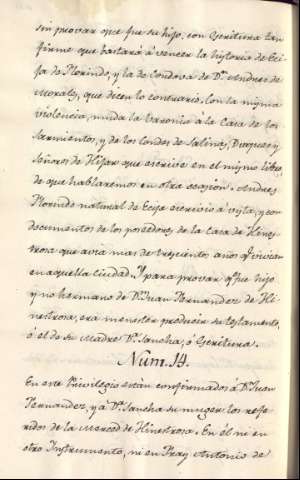 sin provar que fue su hijo, con Escritura tan
firme que bastará á vencer la historia de Ecija
de Florindo, y la de Cordova de Dn. Andres de
Morales, que dicen lo contrario. Con la misma
violencia, muda la Varonia á la Casa de los
Sarmientos, y de los Condes de Salinas, Duques y
Señores de Hijar que escrive en el mismo libro,
de que hablaremos en otra ocasion. Andres
Florindo natural de Ecija escrivió á vista, y con
documentos de los posedores de la Casa de Hines-
trosa que avia mas de trescientos años qe. vivian
en aquella ciudad. Y para provar qe. fue hijo
y no hermano de Dn. Juan Fernandez de Hi-
nestrosa, era menester producir su testamento,
ó el de su Madre Da. Sancha, ó Escritura.
Núm. 14.
En este Privilegio están confirmados á Dn. Juan
Fernandez, y á Da. Sancha su muger los refe-
ridos de la Merced de Hinestrosa. En él ni en
otro Instrumento, ni en Fray Antonio de